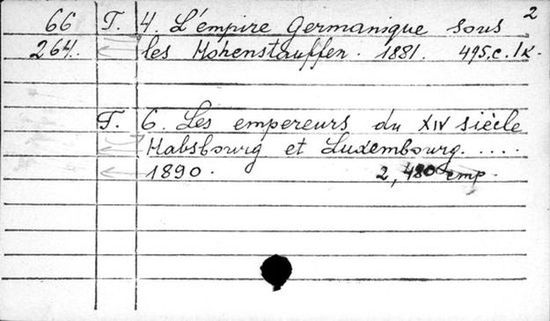 2
66 T. 4. L'empire Germanique sous
264. les Hohenstauffen. 1881. 495.c. IK.
T. 6. Les empereurs du XIV siècle
Habsbourg et Luxembourg.....
1890. 2, 480 стр.